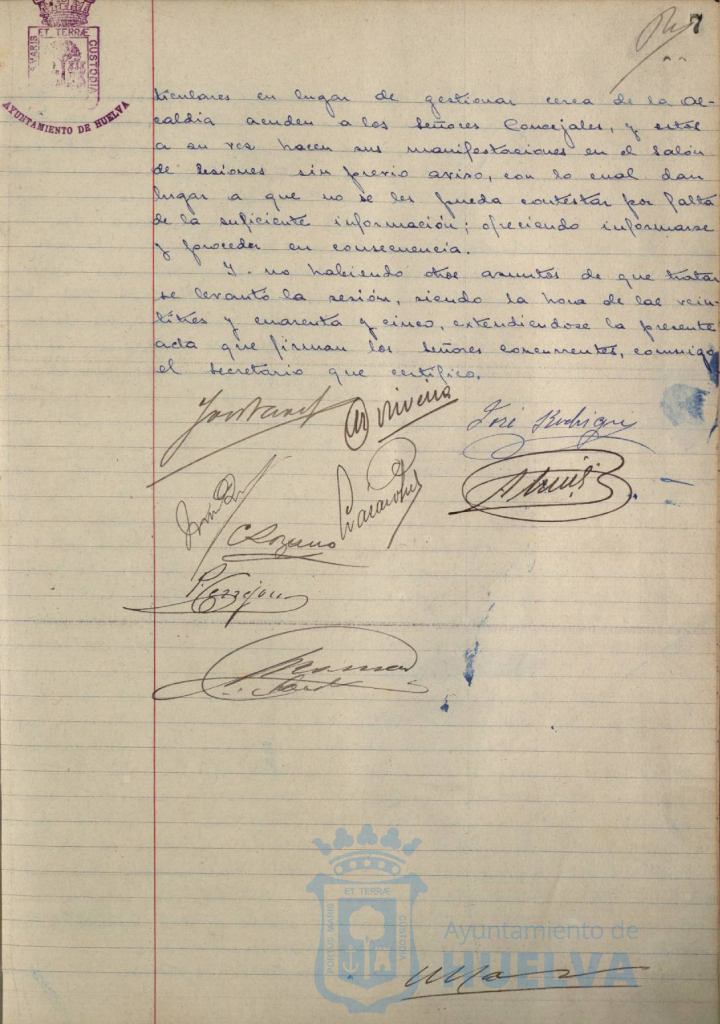 7
ET TERRÆ
MARIS
CUSTODIA
AYUNTAMIENTO DE HUELVA
ticulares en lugar de gestionar cerca de la Al-
caldia acuden a los Señores Concejales, y estos
a su vez hacen sus manifestaciones en el Salón
de Sesiones sin previo aviso, con lo cual dan
lugar a que no se les pueda contestar por falta
de la suficiente información; ofreciendo informarse
y proceder en consecuencia.
Y no habiendo otros asuntos de que tratar
se levantó la sesión, siendo la hora de las vein-
titres y cuarenta y cinco, extendiendose la presente
acta que firman los Señores concurrentes, conmigo
el Secretario que certifico.
José Rodrigu
C Lozano
ET TERRÆ
PORTUS MARIS
CUSTODIA
Ayuntamiento de
HUELVA